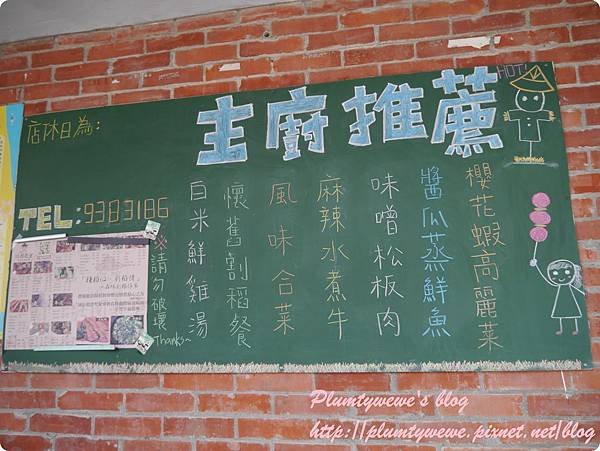 主廚推薦
HOT!
店休日為：
TEL:9383186
櫻花蝦高麗菜
醬瓜蒸鮮魚
味噌松板肉
麻辣水煮牛
風味合菜
懷舊割稻餐
白米鮮雞湯
※請勿破壞
Thanks~
Plumtywewe's blog
http://plumtywewe.pixnet.net/blog